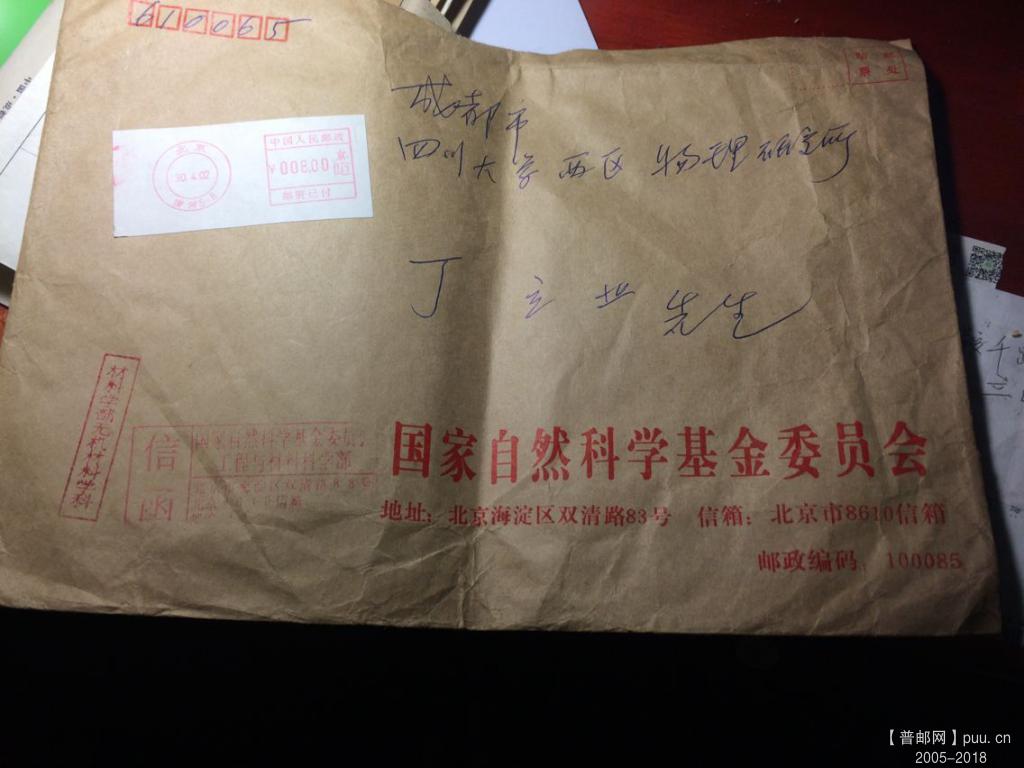 610065
贴邮
票处
成都市
四川大学西区 物理研究所
中国人民邮政
¥008.00
京
邮资已付
北京
30.4.02
丁立业 先生
材料学部无机材料学科
信函
国家自然科学基金委员会
工程与材料科学部
国家自然科学基金委员会
地址:北京海淀区双清路83号 信箱:北京市8610信箱
邮政编码:100085
【普邮网】puu.cn
2005-2018